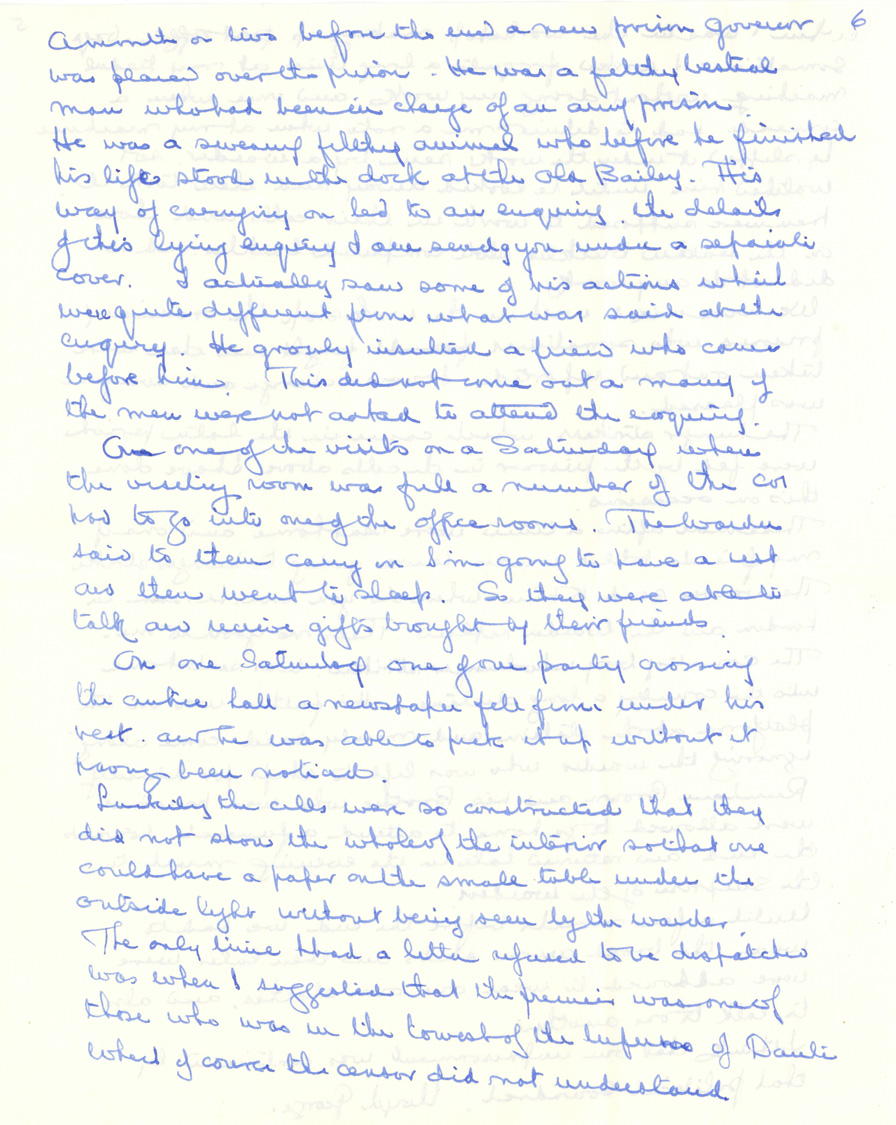 6
A month or two before the end a new prison governor
was placed over the prison. He was a filthy bestial
man who had been in charge of an army prison.
He was a swearing filthy animal who before he finished
his life stood in the dock at the Old Bailey. His
way of carrying on led to an enquiry. the details
of this lying enquiry I am sendg you under a separate
cover. I actually saw some of his actions which
were quite different from what was said at the
enquiry. He grossly insulted a friend who came
before him. This did not come out a many of
the men were not asked to attend the enquiry.
On one of the visits on a Saturday when
the visiting room was full a number of the COs
had to go into one of the office rooms. The Warder
said to them carry on I'm going to have a rest
and then went to sleep. So they were able to
talk and receive gifts brought by their friends.
On one Saturday one of our party crossing
the entire hall a newspaper fell from under his
vest. and he was able to pick it up without it
having been noticed.
Luckily the cells were so constructed that they
did not show the whole of the interior so that one
could have a paper on the small table under the
outside light without being seen by the warder.
The only time I had a letter refused to be dispatched
was when I suggested that the premier was one of
those who was in the lowest of the Inferno of Dante
which of course the censor did not understand